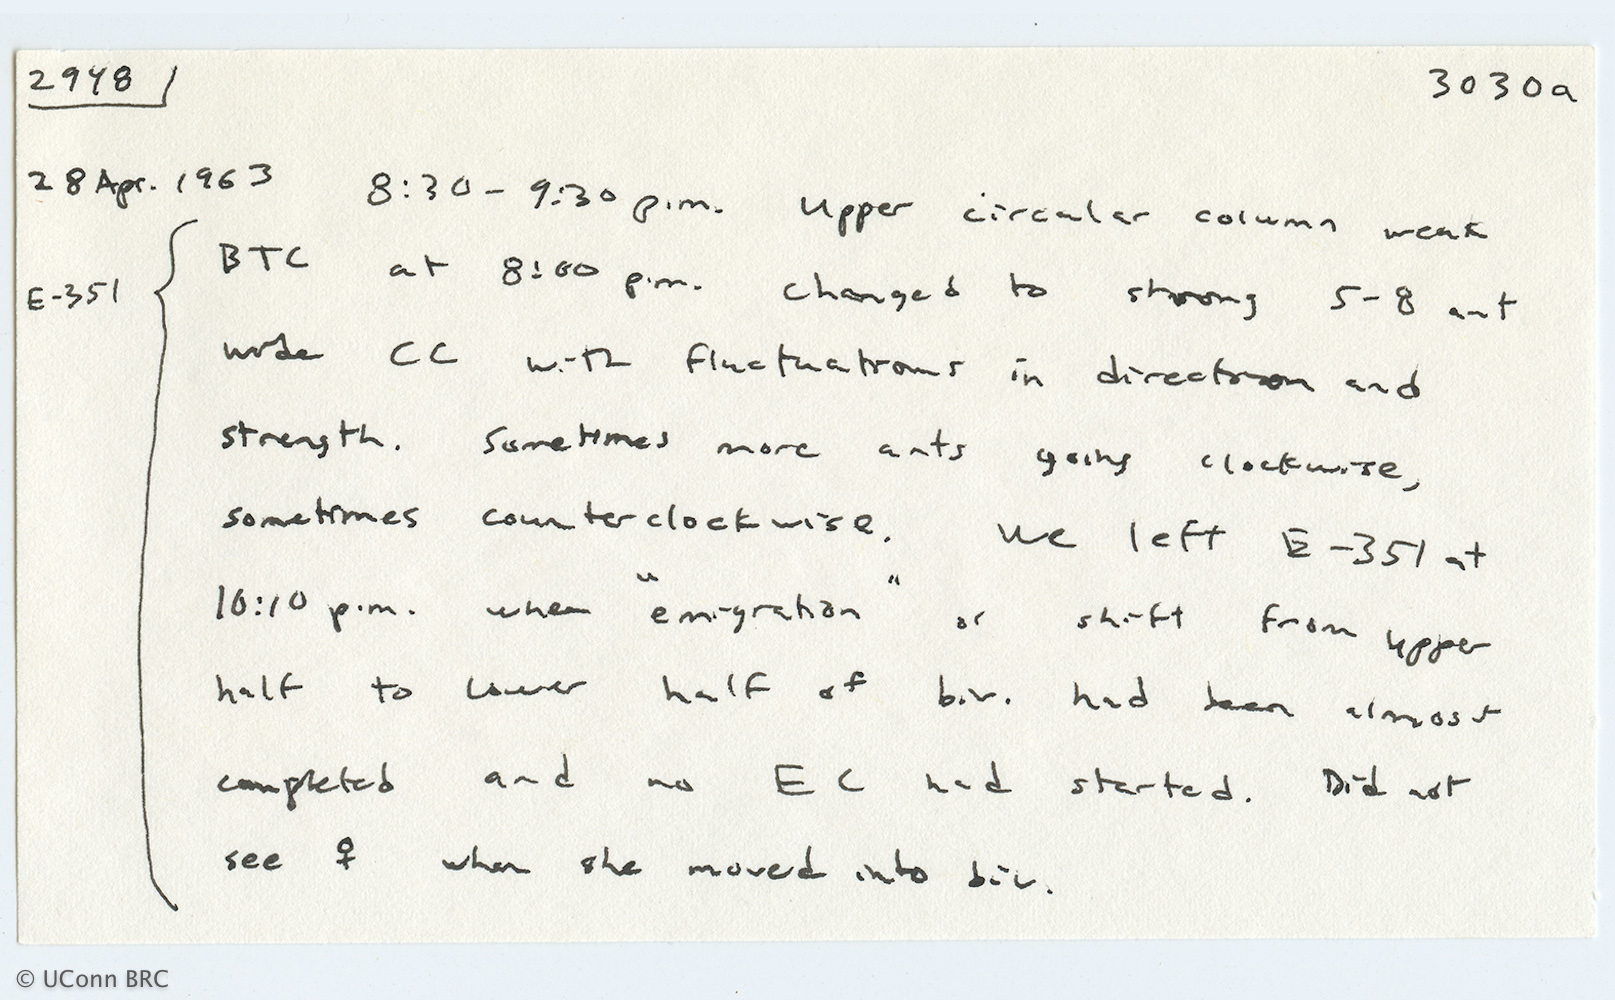 2948
3030a
28 Apr. 1963 8:30 - 9:30 p.m. Upper circular column weak
E-351
BTC at 8:00 p.m. changed to strong 5-8 ant
wide CC with fluctuations in direction and
strength. Sometimes more ants going clockwise,
sometimes counterclockwise. We left E-351 at
10:10 p.m. when "emigration" or shift from upper
half to lower half of biv. had been almost
completed and no EC had started. Did not
see ♀ when she moved into biv.
© UConn BRC